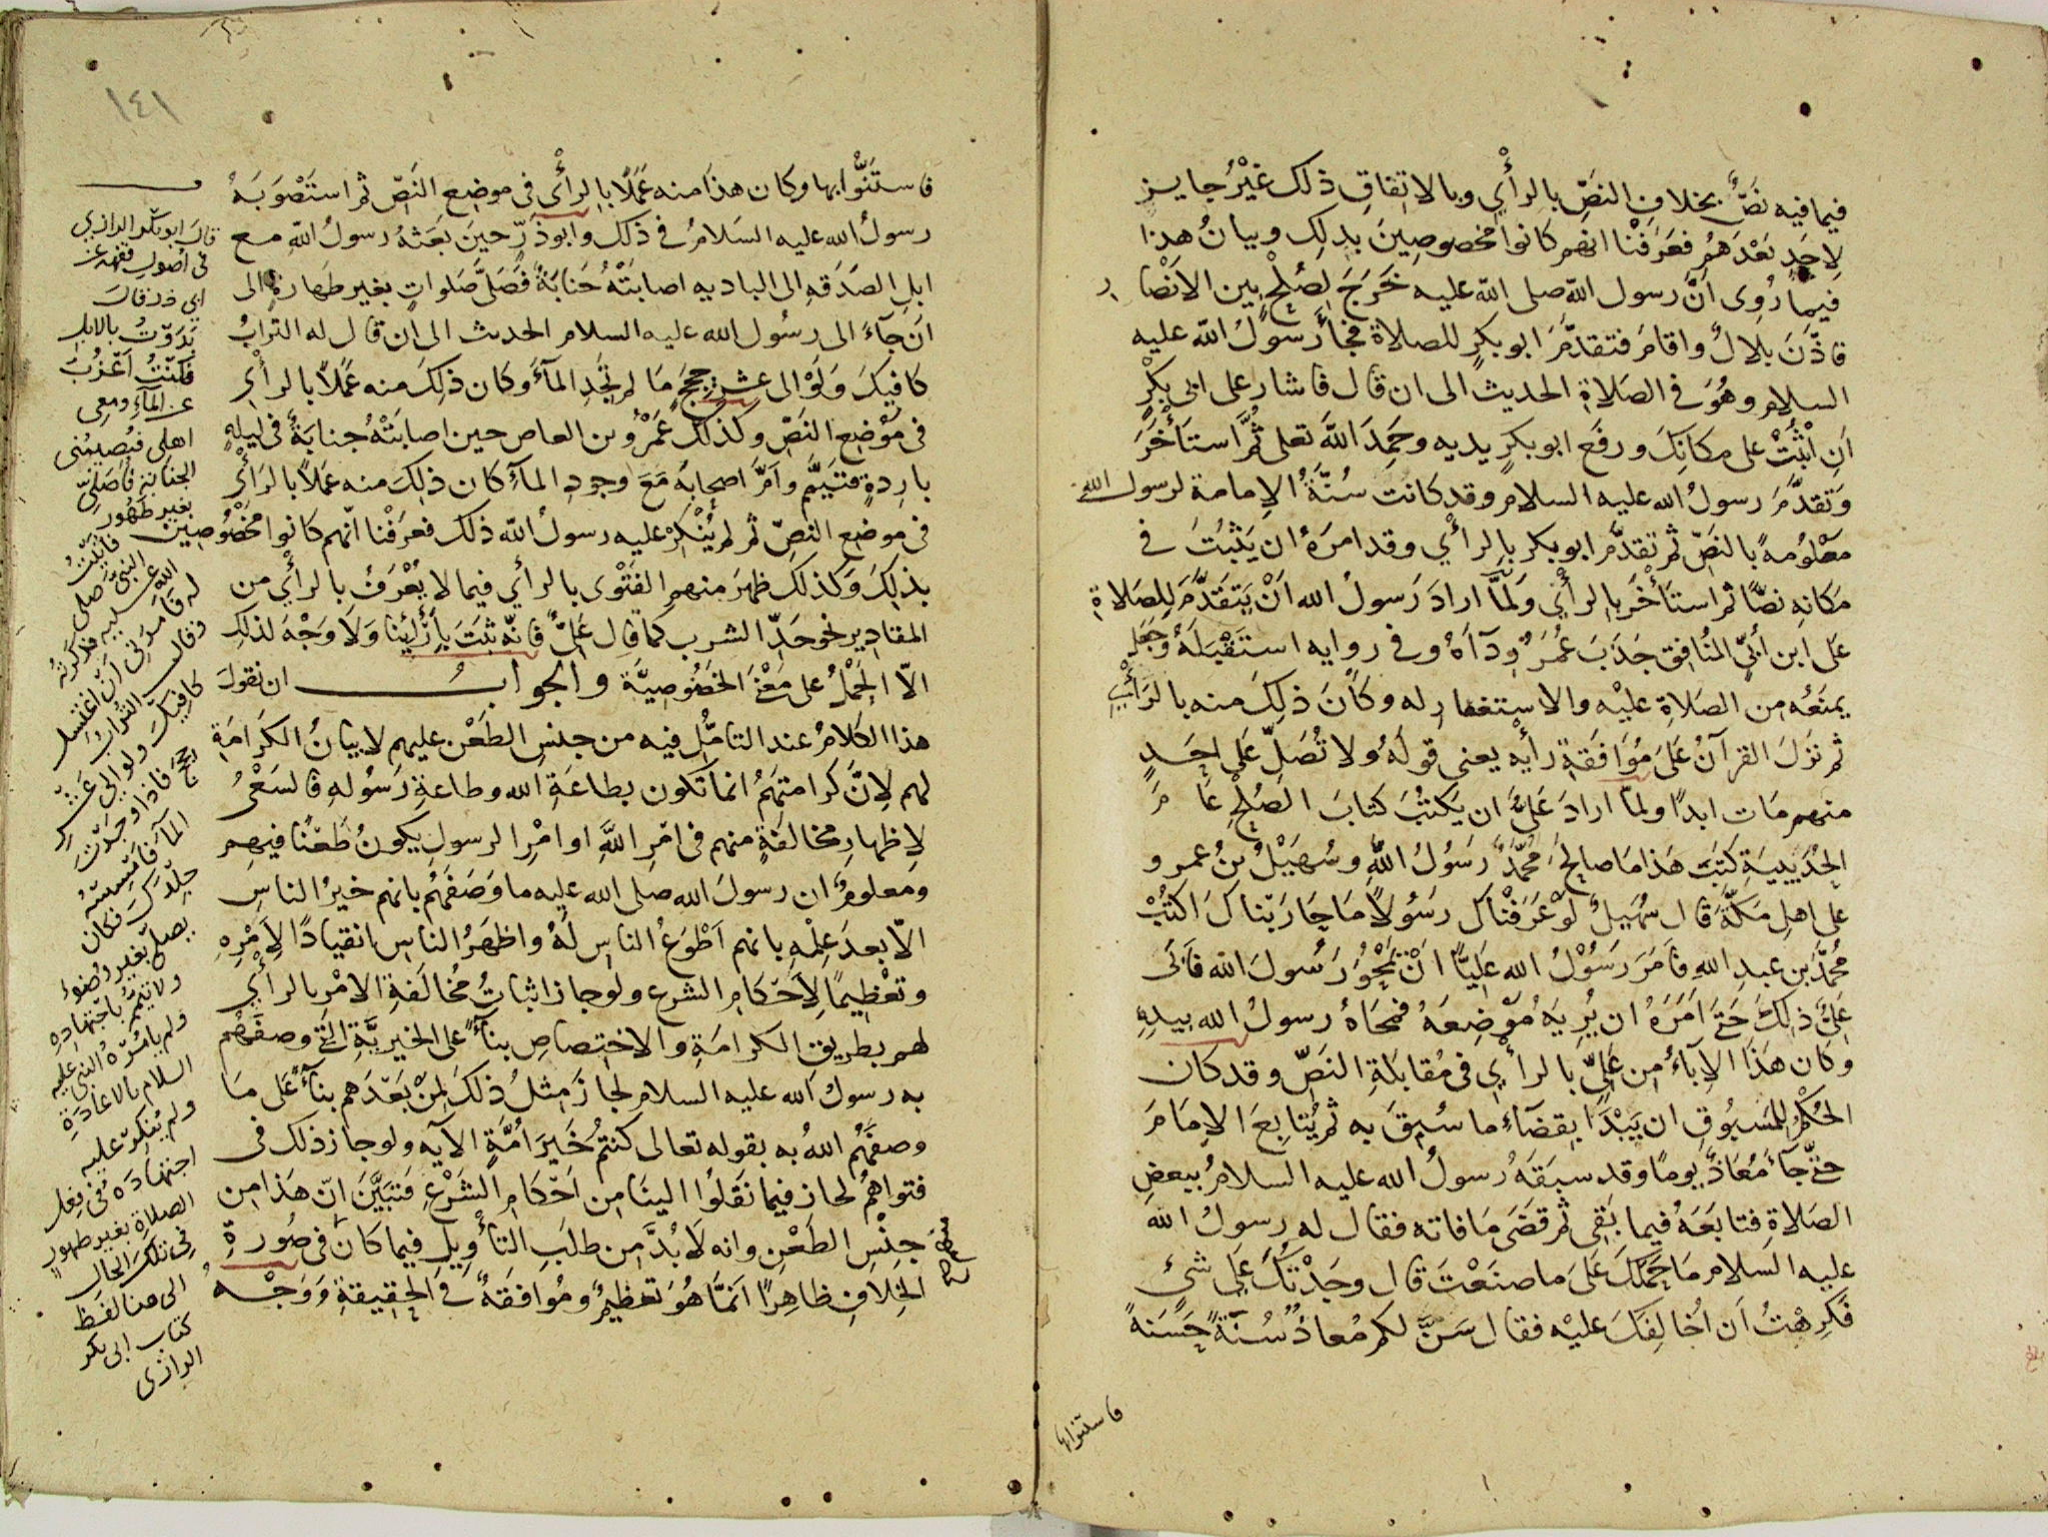 فيما فيه نصٌّ بخلافِ النصِّ بالرأْيِ وبالاتفاقِ ذلك غيْرُ جايزٍ
لِاحَدٍ بَعْدَهُم فعَرَفْنا انهم كانوا مخصوصِينَ بذلِك وبيانُ هذا
فيما رُوِى اَنَّ رسول الله صلى الله عليه خَرَجَ لِصُلْحٍ بين الانْصَارِ
فاذَّنَ بلالٌ واقامَ فتقدَّمَ ابو بكرٍ للصلاة فجاَءَ رسولُ الله عليه
السلام وهُوَ فى الصَلاةِ الحديث الى ان قال فاشار على ابى بكْرٍ
اَنِ اثْبُتْ على مكانِكَ ورفَع ابو بكرٍ يديه وحَمِدَ اللهَ تعلى ثُمَّ استَأْخَرَ
وَتقدَّمَ رسولُ الله عليه السلام وقد كانت سُنَّةُ الإمامة لرسول الله
معْلُومةً بالنصِّ ثم تقدَّم ابو بكر بالرأْي وقد امَرَهُ ان يَثْبُتَ فى
مكانهِ نصًّا ثم استأْخَر بالرأْي وَلَمَّا ارادَ رَسولُ الله اَنْ يَتَقَدَّمَ لِلصَلاةِ
عَلى ابن اُبَيٍّ المُنافِقِ جَذَبَ عُمَرُ رِدآءَهُ وفى روايه استَقْبَلَهُ وجَعَل
يمنَعُه من الصَلاةِ عليْه والاستغفارِ له وكاَنَ ذلِكَ منه بالرَأْيِ
ثم نزَلَ القرآنُ عَلىَ مُوَافقَةِ رأيه يعنى قولَهُ ولا تُصَلِّ عَلى احَدٍ
منهم مَات ابدًا ولمّا ارادَ عَلىٌّ ان يَكتُبَ كتابَ الصُلْحِ عَامَ
الحُدَيْبِيَةِ كتَبَ هَذا مَا صالحَ مُحمَّدٌ رَسُولُ اللهِ وسُهَيْلُ بنُ عمرو
على اهلِ مَكّةَ قال سُهَيلٌ لَوْ عَرَفْناكَ رسَُولًا مَا حَارَبْناكَ اكتُبْ
مُحمَّدُ بن عبدِ اللهِ فاَمَرَ رَسُوْلُ الله عَلِيًّا اَنْ يَمْحُوَ رَسولَ الله فاَبَى
عَلىٌّ ذلِكَ حَتّى اَمَرَهُ ان يُرِيَهُ مَوْضِعَهُ فمحَاهُ رسولُ الله بيدِهِ
وكان هَذا الإبَاءُ من عَلىٍّ بالرأيِ فى مُقابَلةِ النصِّ وقد كان
الحُكْمُ للمَسْبُوقِ ان يَبْدَاَ بِقضَآءِ ما سُبِقَ به ثم يُتابِعَ الاِمَامَ
حتّى جآءَ مُعَاذٌ يومًا وقد سبقَهُ رسولُ الله عليه السلامُ ببعضِ
الصَلاةِ فتابَعَهُ فيما بَقِى ثم قضَى مَا فاته فقال له رسولُ الله
عليه السلام مَا حَمَلَكَ عَلىَ ما صنَعْتَ قال وجَدْتُكَ عَلى شئٍ
فكَرِهْتُ اَن اُخالِفَكَ عليْه فقال سَنَّ لكم مُعاذٌ سُنّةً حَسَنةً
فاستنوا بها
١٤١
فاستَنُّوا بها وكان هذا منه عَمَلًا بالرأْى فى موضِعِ النَصّ ثم استَصْوَبَهُ
رسولُ الله عليه السَلامُ فى ذلك وابو ذَرٍّ حينَ بعَثهُ رسولُ اللهِ مع
ابلِ الصَدَقهِ الى الباديهِ اصابتْهُ جَنابَةٌ فصَلّى صَلواتٍ بغير طهارةٍ الى
اَن جآءَ الى رسُول الله عليه السلام الحديث الى ان قال له الترابُ
كَافيكَ وَلَوْ الى عشرِ حِجَجٍ مَا لم تَجِدِ المآءَ وكان ذلِكَ منه عَملاً بالرأْيِ
فى مَوْضِعِ النَصِّ وكذلكَ عَمْرُو بن العاص حين اصابتْهُ جنابَةٌ فى ليلةٍ
بارِدةٍ فتيمَّم واَمَّ اصحابَهُ مَعَ وجودِ المآءِ كان ذلِكَ منه عَملاً بالرَأْيِ
فى موضعِ النصِّ ثم لم يُنْكِرْ عليه رسولُ الله ذلك فعرَفْنا انّهم كانوا مخصُوصِين
بذلِكَ وَكذلك ظهرَ منهم الفَتْوى بالرأي فيما لا يُعْرَفُ بالرأي من
المقاديرِ نحو حَدّ الشرب كما قال عَلىٌّ فانّه ثبَتَ بِأَرْئِينا وَلاَ وَجْهَ لذلِك
الاّ الحَمْلُ على مَعْنَى الخصُوصِيَّة والجوابُ ان نقولَ
هذا الكلامُ عند التأمُّلِ فيه من جنسِ الطَعْن عليهم لا بيانُ الكَرامَةِ
لهم لِاَنَّ كرامتَهُمُ انما تكون بطاعَةِ الله وطاعةِ رَسُولهِ فالسَعْىُ
لاِظهارِ مخالفَةٍ منهم فى امْرِ اللهِ او امْرِ الرسولِ يكونُ طَعْنًا فيهم
ومعلومٌ ان رسولَ الله صلى الله عليه ما وَصَفَهُم بانهم خيرُ الناسِ
الاّ بعدَ عِلْمِهِ بانهم اَطْوَعُ الناسِ لَهُ واظهَرُ الناسِ انقيادًا لِاَمْرِهِ
وتعْظيمًا لِاَحْكامِ الشرع ولو جاز اثباتُ مُخالَفةِ الامْر بالرأْي
لهم بطريقِ الكرامَةِ والاختِصاصِ بنآءً على الخيريَّةِ التى وصفَهُم
به رسولُ الله عليه السلام لجازَ مثلُ ذلكَ لِمَنْ بَعْدَهم بنآءً عَلى مَا
وصفَهُم اللهُ به بقوله تعالى كنتُم خَيرَ اُمَّةٍ الآيه ولو جاز ذلك فى
فتواهُم لجاز فيما نَقلُوا الينَا من اَحْكامِ الشَرْعِ فتبَيَّنَ انّ هَذا من
جِنْسِ الطَعْنِ وانه لاَ بُدَّ من طلَبِ التأْوِيلِ فيما كاَن فى صُورةِ
الخِلافِ ظاهِرًا انمَّا هُوَ تعظيمٌ ومُوافقَةٌ فى الحقِيقةِ وَوَجْهُ
قال ابو بكر الرازي
فى اصول فقهه عن
ابى ذر قال
بَدَوْتُ بالابل
فكنتُ اَعْزُبُ
عن المآءِ ومعى
اهلى فتُصيبُنى
الجنابة فاُصَلّى
بغير طَهُور
فأتيتُ
النبىَّ صلى
الله عليه فذكرتُه
له فامرنى اَن اغتسل
وقال التُرابُ
كافيكَ ولو الى عَشْرِ
حجج فاذا وجدْتَ
المآءَ فامْسِسْهُ
جِلْدَكَ فكان
يصلى بغير وضوء
ولا تيمُّمٍ باجتهادِهِ
ولم يأمُرْهُ النبى عليه
السلام بالاعادةِ
ولم يُنكِرْ عليه
اجتهادَه فى فِعْلِ
الصلاة بغير طهورٍ
فى تلك الحالِ
الى هنا لفظ
كتاب ابى بكر
الرازى